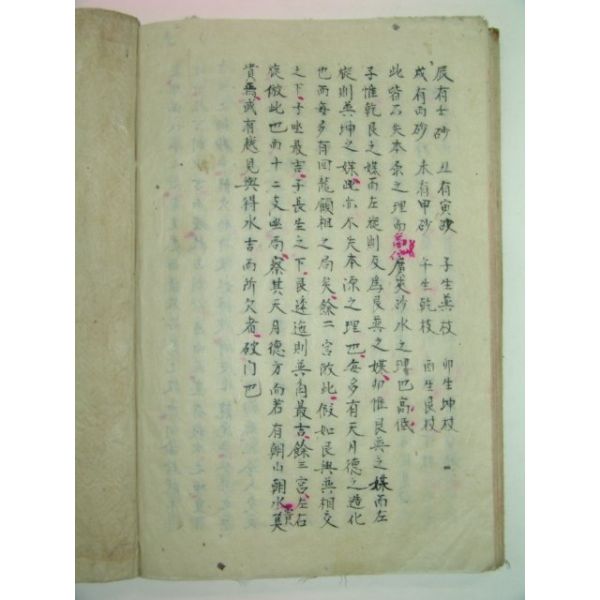 辰有壬砂 丑有寅砂 子生巽枝 卯生坤枝
戌有丙砂 未有甲砂 午生乾枝 酉生艮枝
此皆不失本宗之理而 廣矣沙水之理也高低
子惟乾艮之媒而左旋則反爲艮巽之媒卯惟艮巽之媒而左
旋則巽坤之媒此亦不失本源之理也每多有天月德之造化
也而每多有回龍顧祖之局矣餘二宮倣此假如艮與巽相交
之下子坐最吉子長生之下艮逶迤則巽角最吉餘三宮左右
旋倣此也而十二支坐局察其天月德方而若有朝山朝水莫
貴焉或有越見與得水吉而所欠者破门也